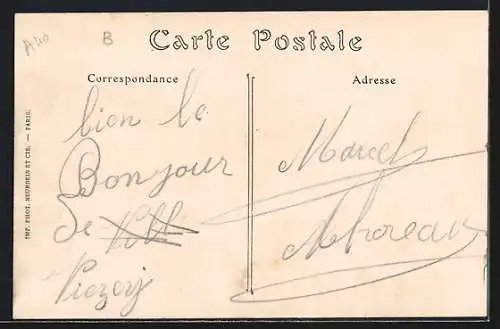 A40
B
Carte Postale
Correspondance
Adresse
bien le
Bonjour
de
IMP. PHOT. NEURDEIN ET CIE. — PARIS.
Marcel
Moreau